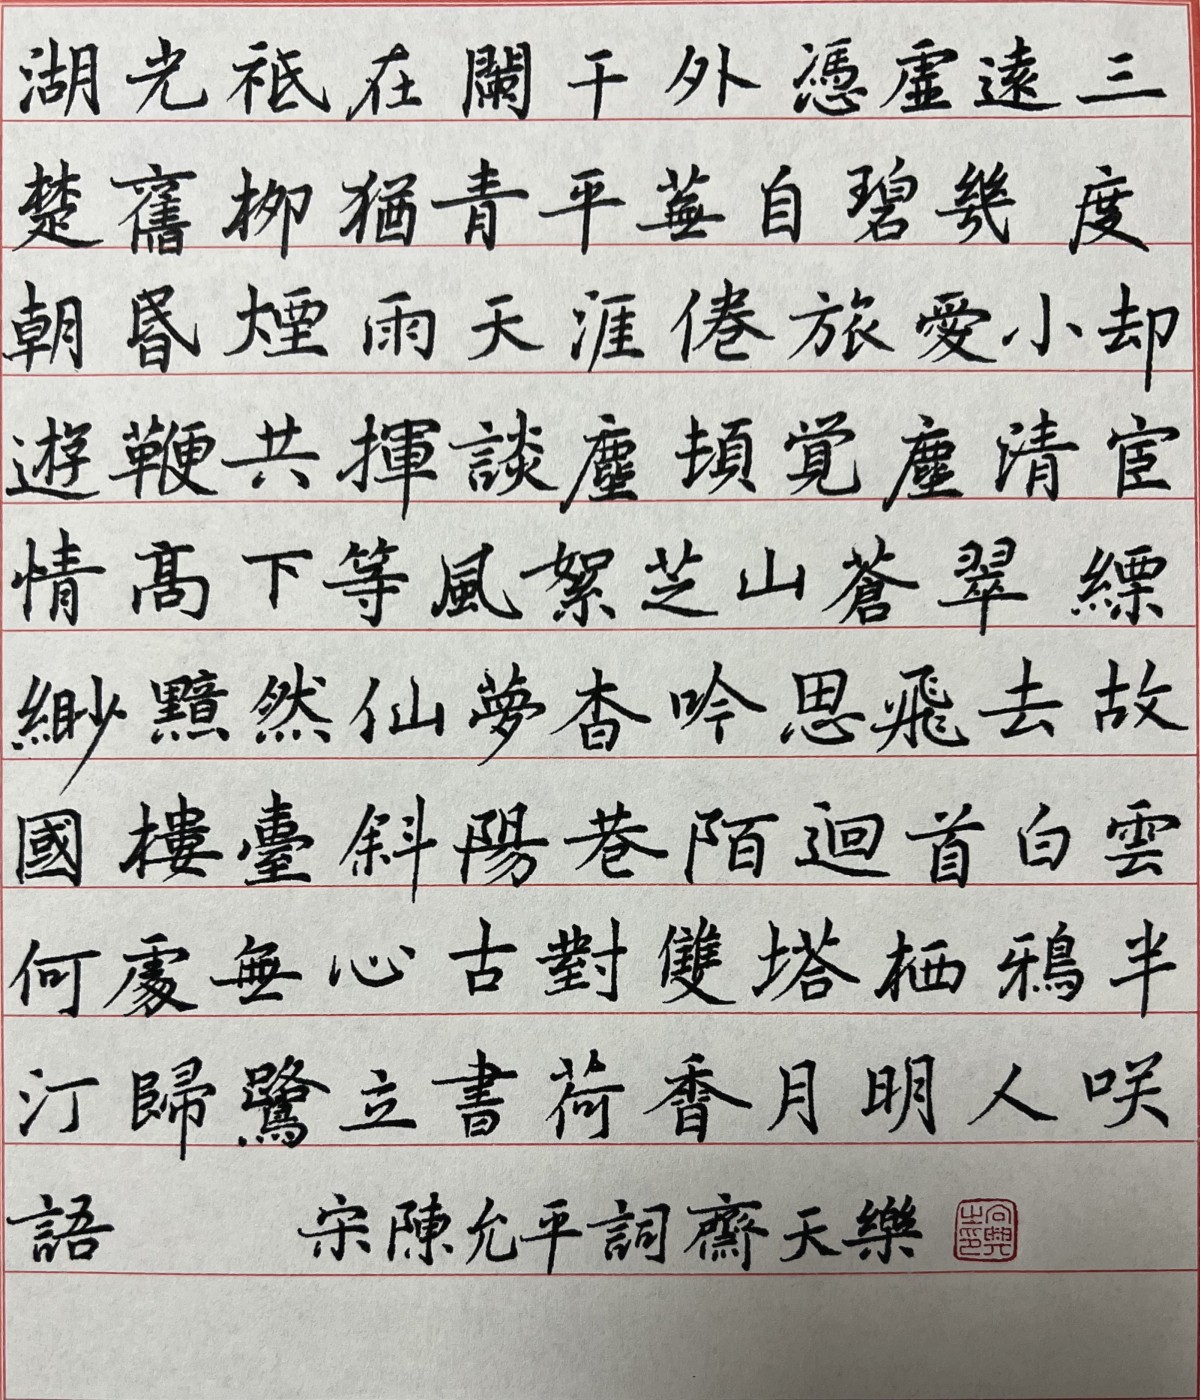 湖光祗在闌干外憑虛遠三
楚舊柳猶青平蕪自碧幾度
朝昏煙雨天涯倦旅愛小却
遊鞭共揮談塵頓覺塵清宦
情高下等風絮芝山蒼翠縹
緲黯然仙夢杳吟思飛去故
國樓臺斜陽巷陌迴首白雲
何處無心古對雙塔栖鴉半
汀歸鷺立書荷香月明人咲
語 宋陳允平詞齋天樂